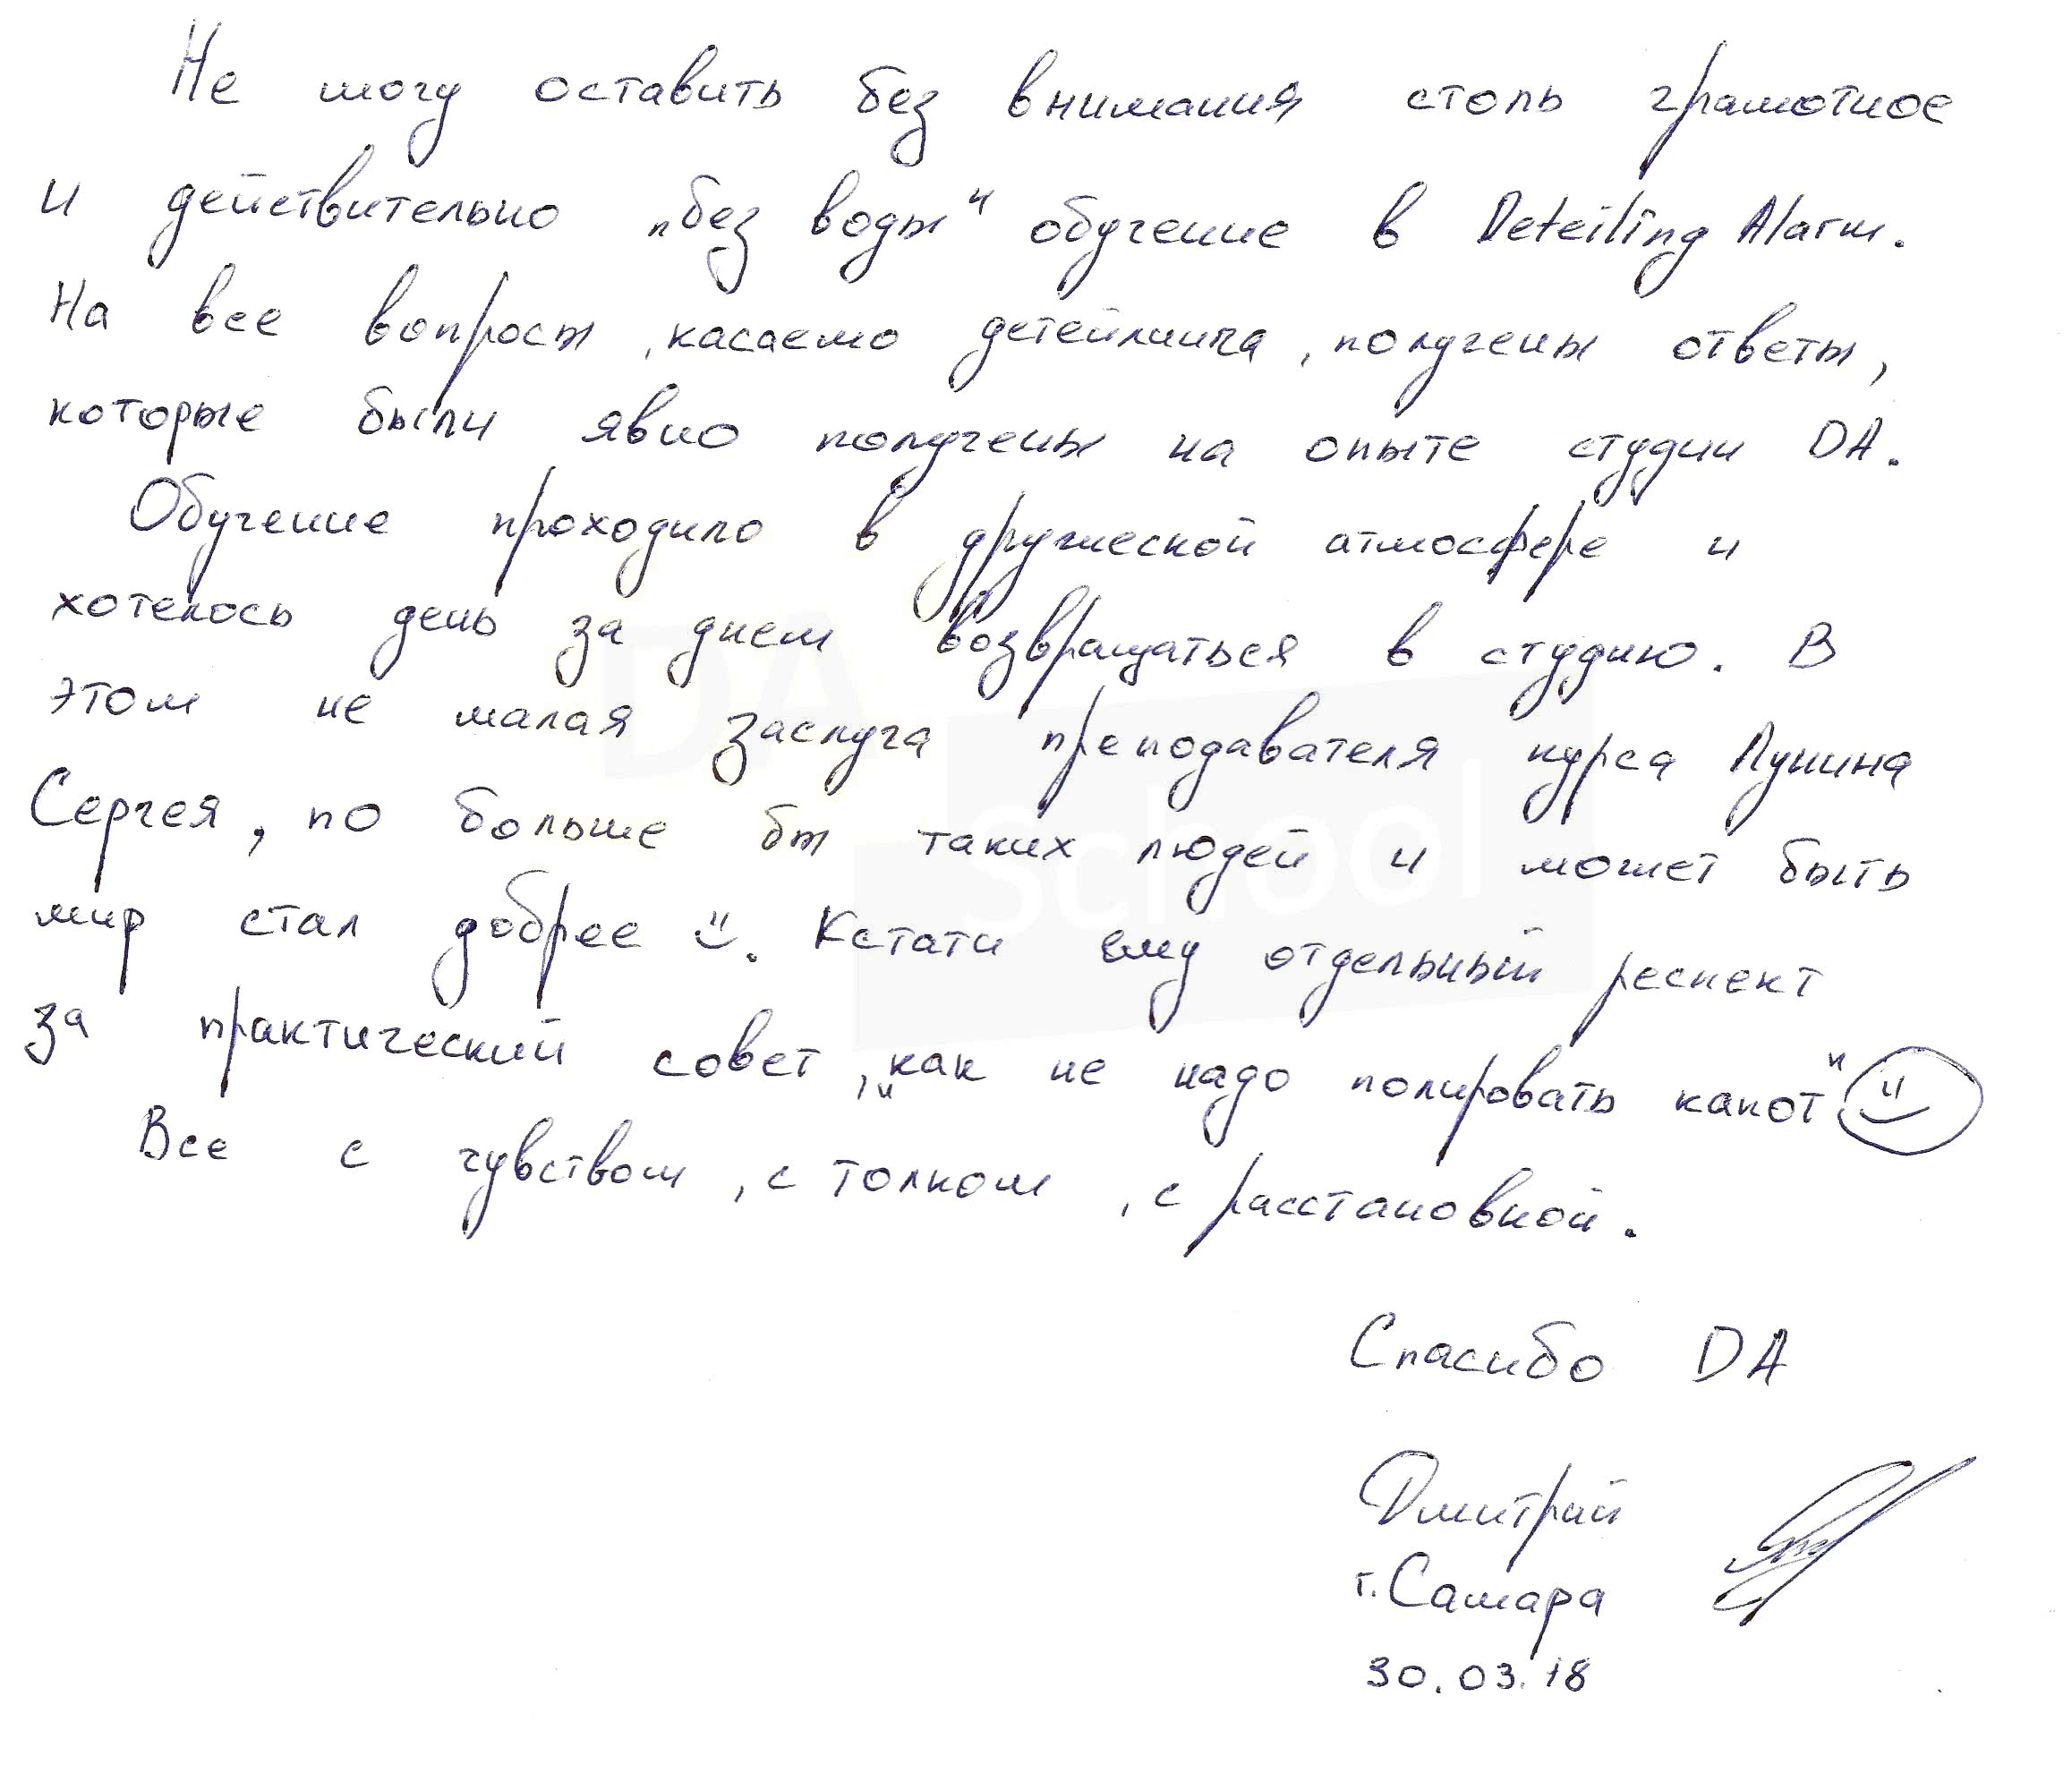 Не могу оставить без внимания столь грамотное
и действительно „без воды" обучение в Deteiling Alarm.
На все вопросы, касаемо детейлинга, получены ответы,
которые были явно получены на опыте студии DA.
Обучение проходило в дружеской атмосфере и
хотелось день за днем возвращаться в студию. В
этом не малая заслуга преподавателя курса Лунина
Сергея, по больше бы таких людей и может быть
мир стал добрее. Кстати ему отдельный респект
за практический совет, „как не надо полировать капот"
Все с чувством, с толком, с расстановкой.
Спасибо DA
Дмитрий
г. Самара
30.03.18
DA
School